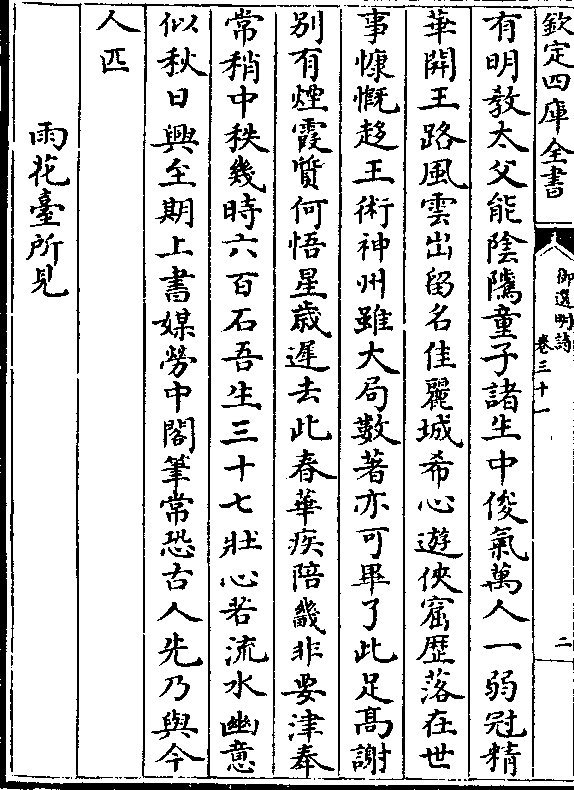 欽定四庫全書
御選明詩
卷三十一
二
有明教太父能陰隲童子諸生中俊氣萬人一弱冠精
華開王路風雲出留名佳麗城希心遊俠窟歷落在世
事慷慨趍王術神州雖大局數著亦可畢了此足髙謝
别有煙霞質何悟星歲遲去此春華疾陪畿非要津奉
常稍中秩幾時六百石吾生三十七壯心若流水幽意
似秋日興至期上書媒勞中閣筆常恐古人先乃與今
人匹
雨花臺所見